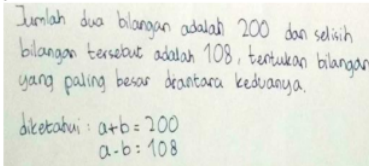 Jumlah dua bilangan adalah 200 dan selisih
bilangan tersebut adalah 108, tentukan bilangan
yang paling besar diantara keduanya.
diketahui : a+b = 200
a-b = 108